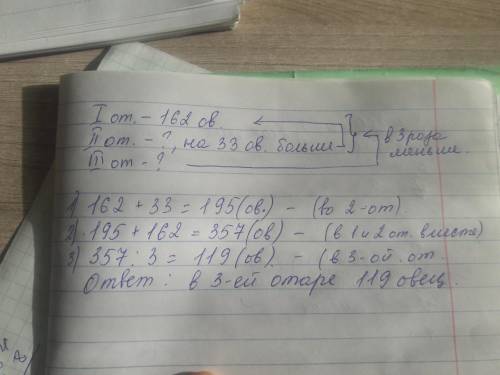 I от. - 162 ов.
II от. - ?, на 33 ов. больше
в 3 раза меньше.
III от - ?
1) 162 + 33 = 195 (ов.) - (во 2-от)
2) 195 + 162 = 357 (ов) - (в 1 и 2 от. вместе)
3) 357 : 3 = 119 (ов). - (в 3-ой от.
Ответ: в 3-ей отаре 119 овец.